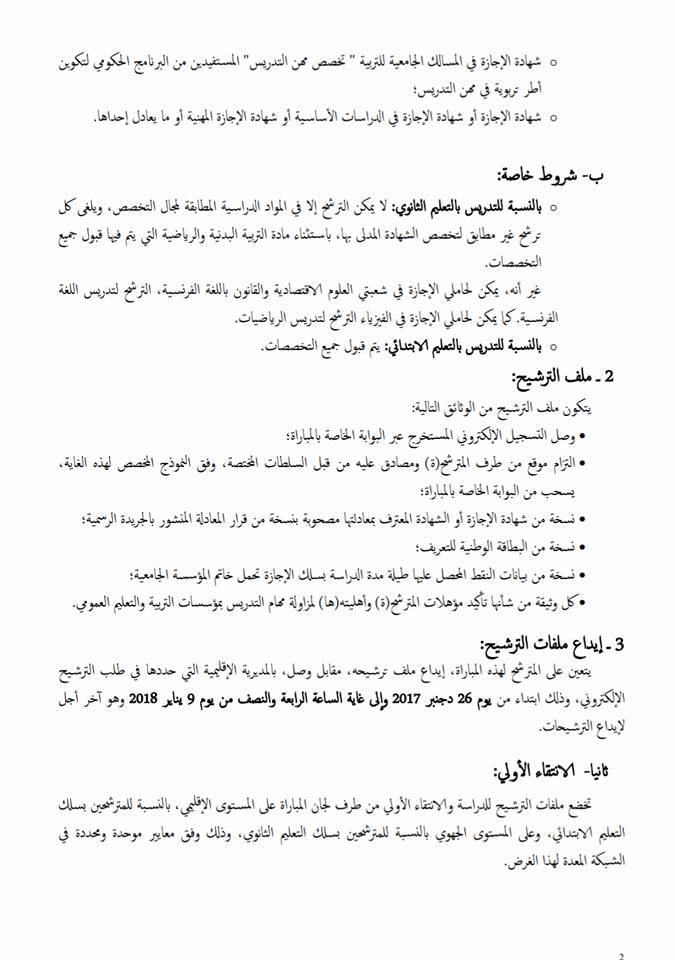 ○ شهادة الإجازة في المسالك الجامعية للتربية " تخصص مهن التدريس" المستفيدين من البرنامج الحكومي لتكوين
أطر تربوية في مهن التدريس؛
○ شهادة الإجازة أو شهادة الإجازة في الدراسات الأساسية أو شهادة الإجازة المهنية أو ما يعادل إحداها.
ب- شروط خاصة:
○ بالنسبة للتدريس بالتعليم الثانوي: لا يمكن الترشح إلا في المواد الدراسية المطابقة لمجال التخصص، ويلغى كل
ترشح غير مطابق لتخصص الشهادة المدلى بها، باستثناء مادة التربية البدنية والرياضية التي يتم فيها قبول جميع
التخصصات.
غير أنه، يمكن لحاملي الإجازة في شعبتي العلوم الاقتصادية والقانون باللغة الفرنسية، الترشح لتدريس اللغة
الفرنسية. كما يمكن لحاملي الإجازة في الفيزياء الترشح لتدريس الرياضيات.
○ بالنسبة للتدريس بالتعليم الابتدائي: يتم قبول جميع التخصصات.
2 ـ ملف الترشيح:
يتكون ملف الترشيح من الوثائق التالية:
• وصل التسجيل الإلكتروني المستخرج عبر البوابة الخاصة بالمباراة؛
• التزام موقع من طرف المترشح(ة) ومصادق عليه من قبل السلطات المختصة، وفق النموذج المخصص لهذه الغاية،
يسحب من البوابة الخاصة بالمباراة؛
• نسخة من شهادة الإجازة أو الشهادة المعترف بمعادلتها مصحوبة بنسخة من قرار المعادلة المنشور بالجريدة الرسمية؛
• نسخة من البطاقة الوطنية للتعريف؛
• نسخة من بيانات النقط المحصل عليها طيلة مدة الدراسة بسلك الإجازة تحمل خاتم المؤسسة الجامعية؛
• كل وثيقة من شأنها تأكيد مؤهلات المترشح(ة) وأهليته(ها) لمزاولة مهام التدريس بمؤسسات التربية والتعليم العمومي.
3 ـ إيداع ملفات الترشيح:
يتعين على المترشح لهذه المباراة، إيداع ملف ترشيحه، مقابل وصل، بالمديرية الإقليمية التي حددها في طلب الترشيح
الإلكتروني، وذلك ابتداء من يوم 26 دجنبر 2017 وإلى غاية الساعة الرابعة والنصف من يوم 9 يناير 2018 وهو آخر أجل
لإيداع الترشيحات.
ثانيا- الانتقاء الأولي:
تخضع ملفات الترشيح للدراسة والانتقاء الأولي من طرف لجان المباراة على المستوى الإقليمي، بالنسبة للمترشحين بسلك
التعليم الابتدائي، وعلى المستوى الجهوي بالنسبة للمترشحين بسلك التعليم الثانوي، وذلك وفق معايير موحدة ومحددة في
الشبكة المعدة لهذا الغرض.
2